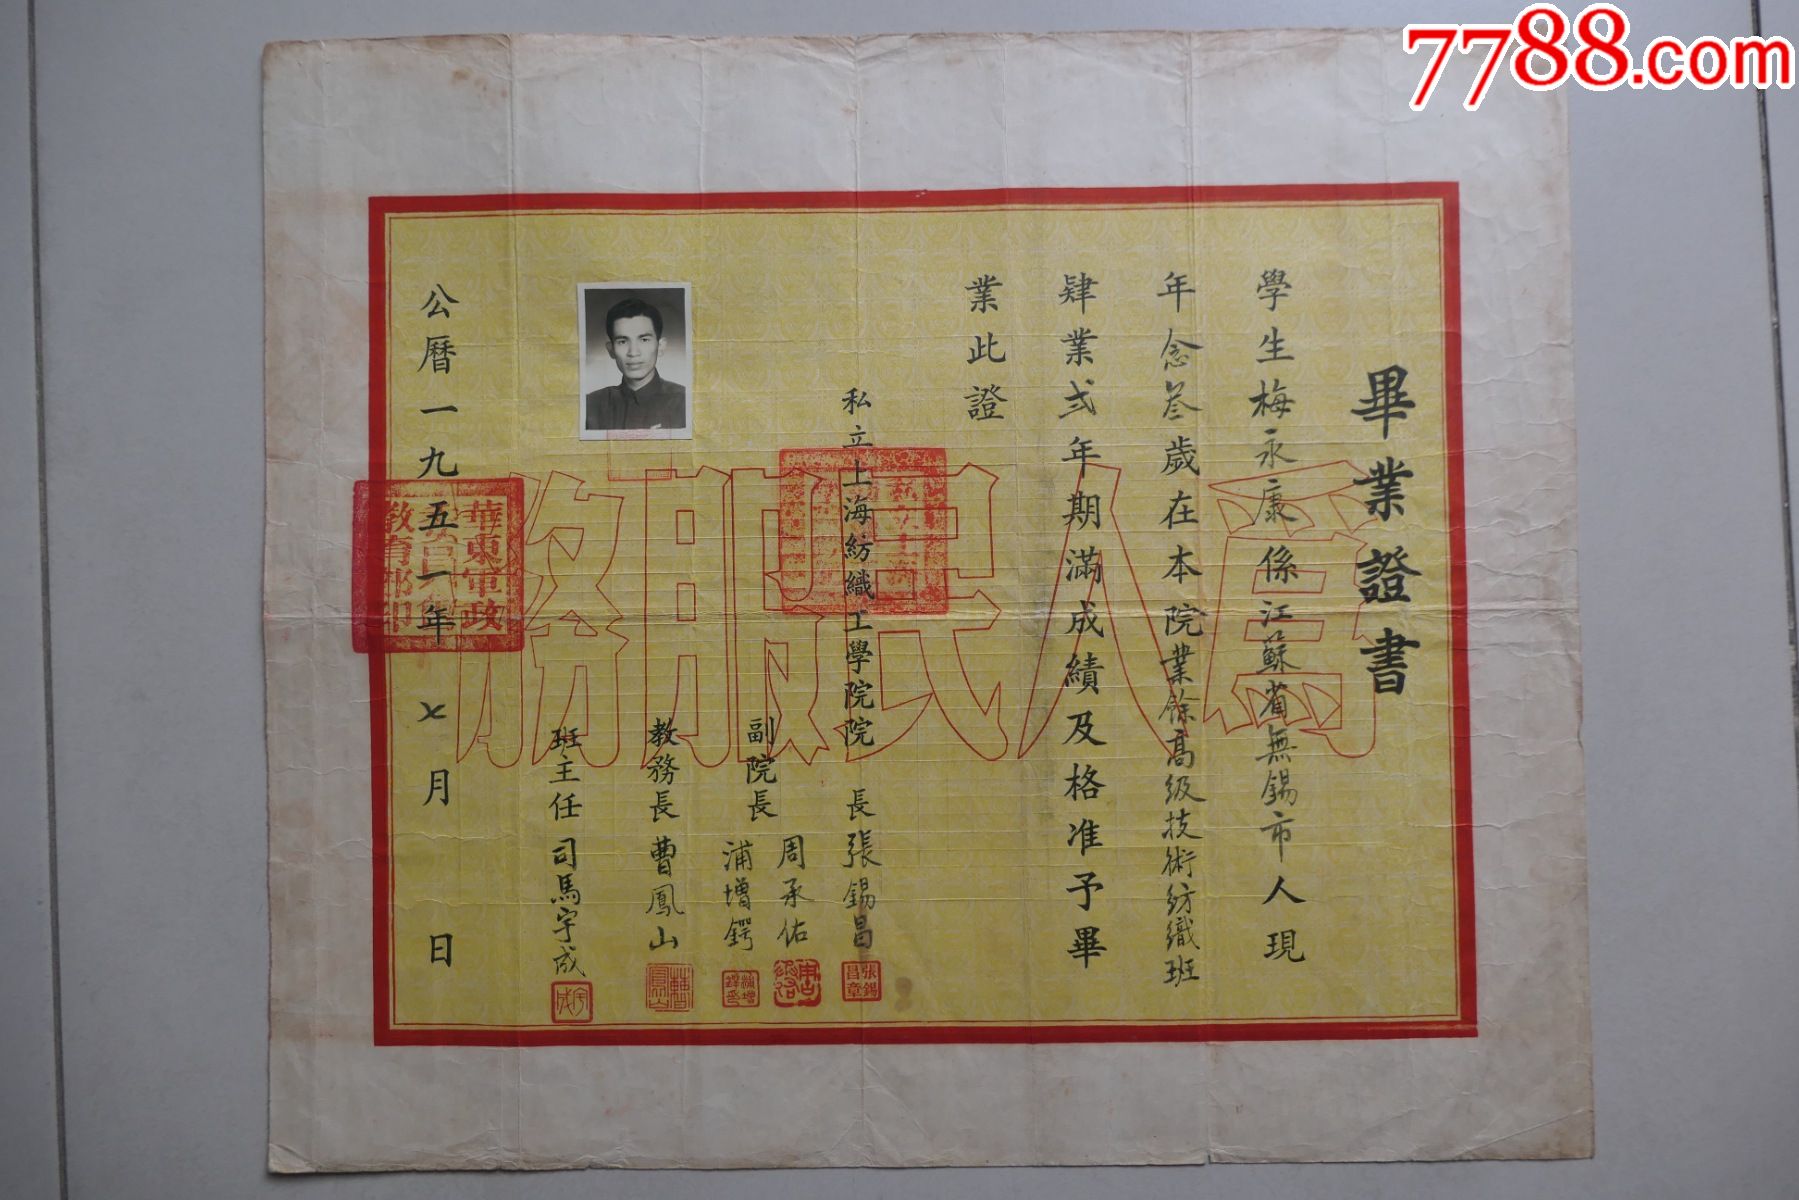 7788.com
畢業證書
學生梅永康係江蘇省無錫市人現
年念叁歲在本院業餘高級技術紡織班
肄業弍年期滿成績及格准予畢
業此證
為人民服務
私立上海紡織工學院院長張錫昌
張錫昌章
副院長
周承佑
浦增鍔
教務長曹鳳山
班主任司馬宇成
公曆一九五一年七月日
華東軍政
教育部印